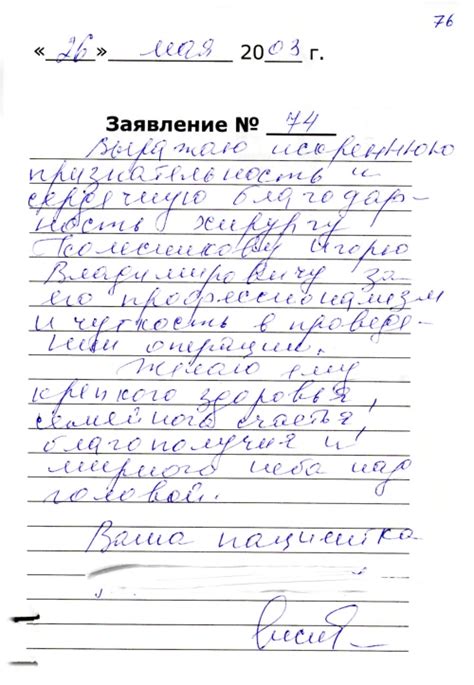 76
«26» мая 2003 г.
Заявление № 74
Выражаю искреннюю
признательность и
сердечную благодар-
ность хирургу
Колесникову Игорю
Владимировичу за
его профессионализм
и чуткость в проведе-
нии операции.
Желаю ему
крепкого здоровья,
семейного счастья,
благополучия и
мирного неба над
головой.
Ваша пациентка